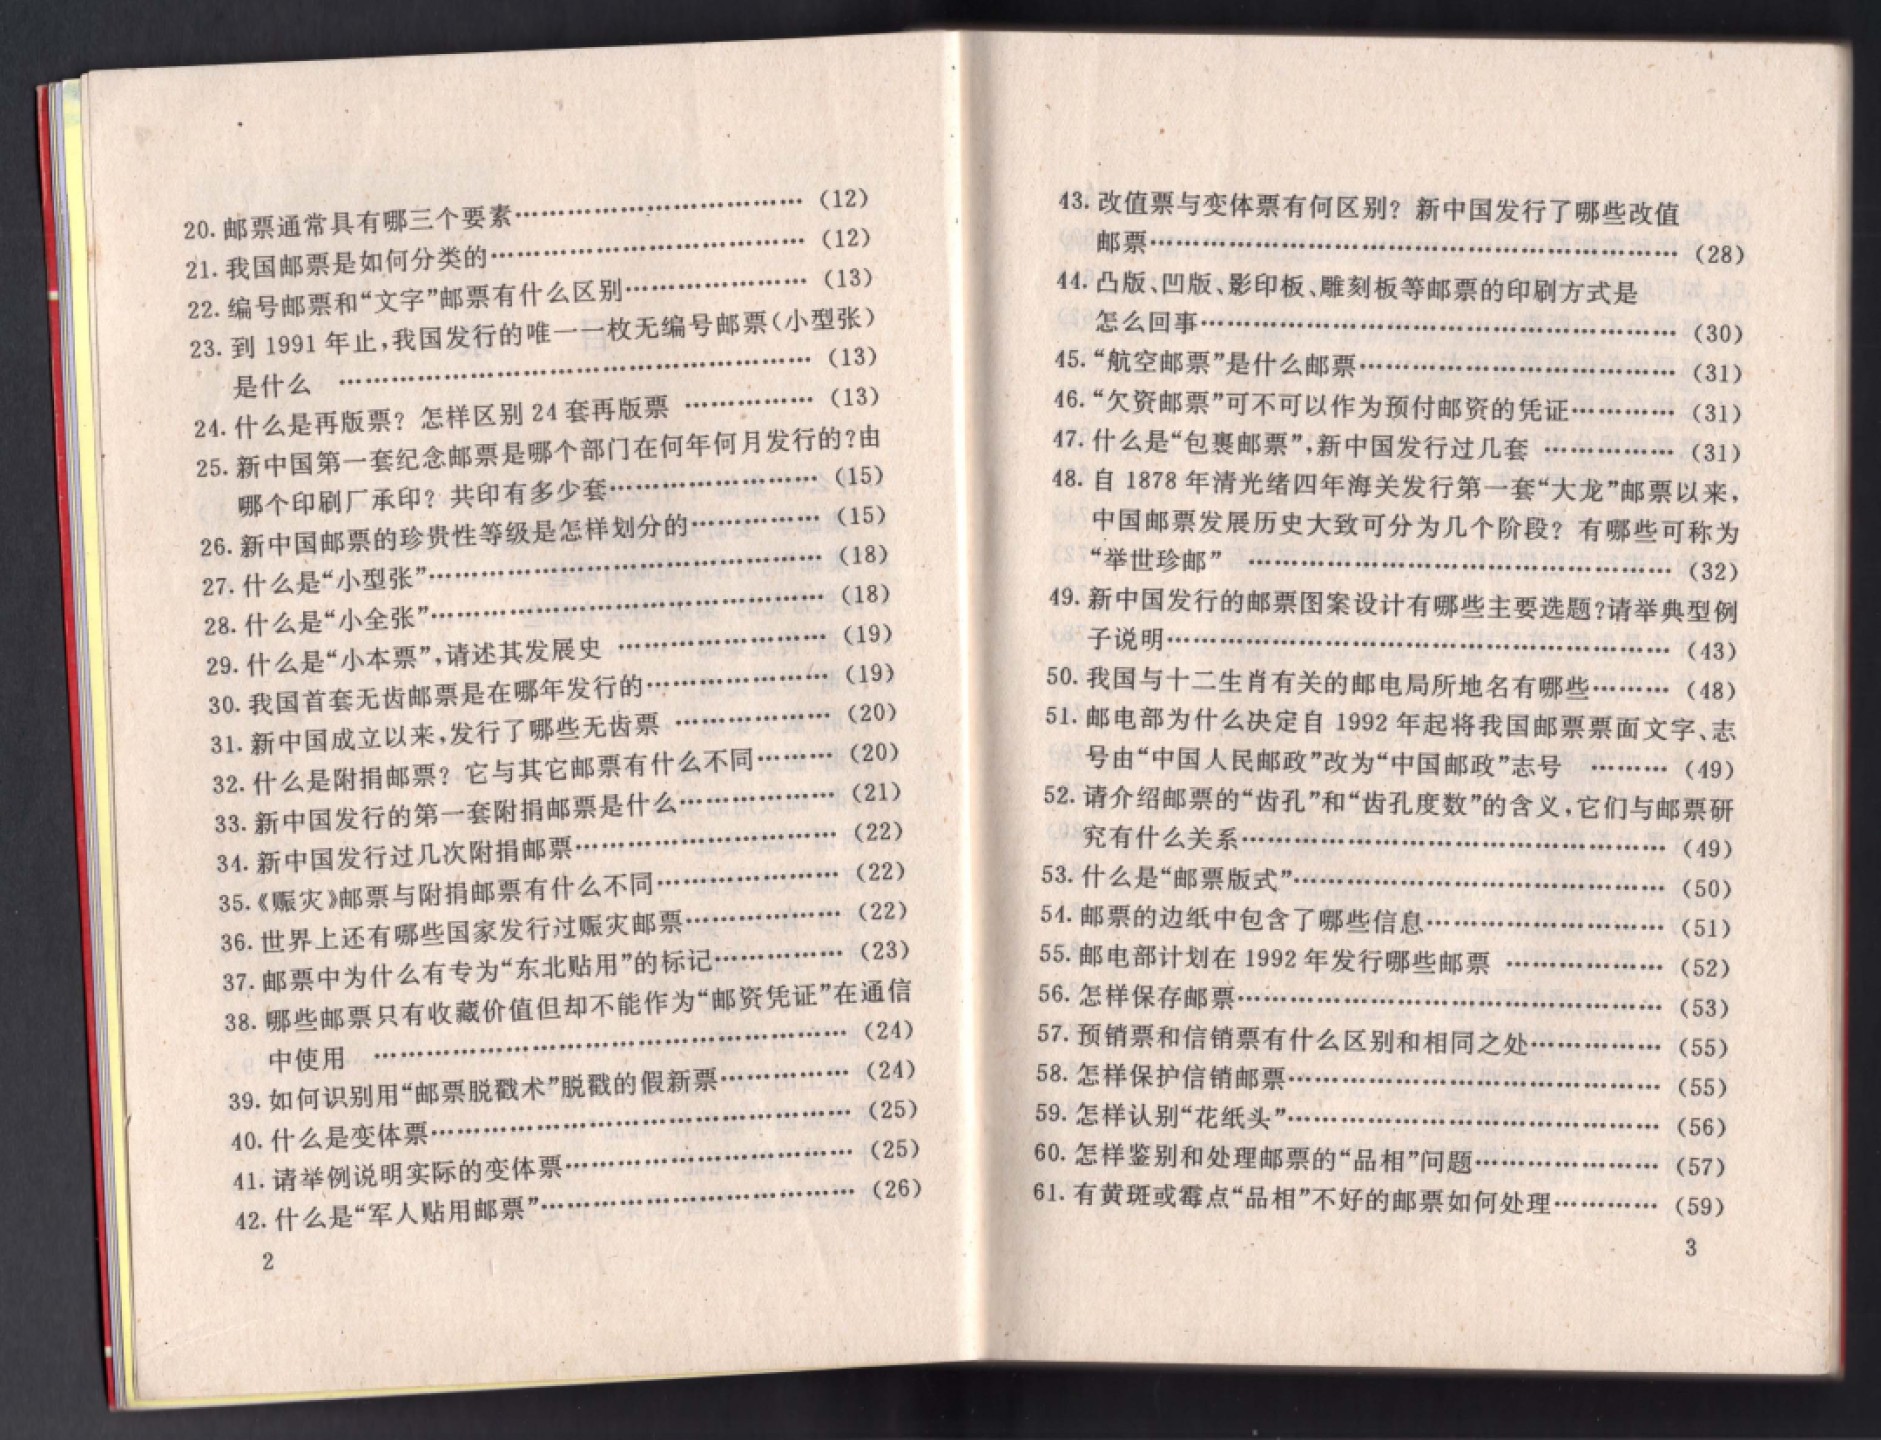 20. 邮票通常具有哪三个要素……………………………(12)
21. 我国邮票是如何分类的………………………………(12)
22. 编号邮票和“文字”邮票有什么区别…………………(13)
23. 到 1991 年止,我国发行的唯一一枚无编号邮票(小型张)
是什么 ………………………………………………(13)
24. 什么是再版票? 怎样区别 24 套再版票 ……………(13)
25. 新中国第一套纪念邮票是哪个部门在何年何月发行的?由
哪个印刷厂承印? 共印有多少套……………………(15)
26. 新中国邮票的珍贵性等级是怎样划分的……………(15)
27. 什么是“小型张”………………………………………(18)
28. 什么是“小全张”………………………………………(18)
29. 什么是“小本票”,请述其发展史 ……………………(19)
30. 我国首套无齿邮票是在哪年发行的…………………(19)
31. 新中国成立以来,发行了哪些无齿票 ………………(20)
32. 什么是附捐邮票? 它与其它邮票有什么不同………(20)
33. 新中国发行的第一套附捐邮票是什么………………(21)
34. 新中国发行过几次附捐邮票…………………………(22)
35.《赈灾》邮票与附捐邮票有什么不同…………………(22)
36. 世界上还有哪些国家发行过赈灾邮票………………(22)
37. 邮票中为什么有专为“东北贴用”的标记……………(23)
38. 哪些邮票只有收藏价值但却不能作为“邮资凭证”在通信
中使用 ………………………………………………(24)
39. 如何识别用“邮票脱戳术”脱戳的假新票……………(24)
40. 什么是变体票…………………………………………(25)
41. 请举例说明实际的变体票……………………………(25)
42. 什么是“军人贴用邮票”………………………………(26)
2
43. 改值票与变体票有何区别? 新中国发行了哪些改值
邮票……………………………………………………(28)
44. 凸版、凹版、影印板、雕刻板等邮票的印刷方式是
怎么回事………………………………………………(30)
45. “航空邮票”是什么邮票………………………………(31)
46. “欠资邮票”可不可以作为预付邮资的凭证…………(31)
47. 什么是“包裹邮票”,新中国发行过几套 ……………(31)
48. 自 1878 年清光绪四年海关发行第一套“大龙”邮票以来,
中国邮票发展历史大致可分为几个阶段? 有哪些可称为
“举世珍邮” …………………………………………(32)
49. 新中国发行的邮票图案设计有哪些主要选题?请举典型例
子说明…………………………………………………(43)
50. 我国与十二生肖有关的邮电局所地名有哪些………(48)
51. 邮电部为什么决定自 1992 年起将我国邮票票面文字、志
号由“中国人民邮政”改为“中国邮政”志号 ………(49)
52. 请介绍邮票的“齿孔”和“齿孔度数”的含义,它们与邮票研
究有什么关系…………………………………………(49)
53. 什么是“邮票版式”……………………………………(50)
54. 邮票的边纸中包含了哪些信息………………………(51)
55. 邮电部计划在 1992 年发行哪些邮票 ………………(52)
56. 怎样保存邮票…………………………………………(53)
57. 预销票和信销票有什么区别和相同之处……………(55)
58. 怎样保护信销邮票……………………………………(55)
59. 怎样认别“花纸头”……………………………………(56)
60. 怎样鉴别和处理邮票的“品相”问题…………………(57)
61. 有黄斑或霉点“品相”不好的邮票如何处理…………(59)
3